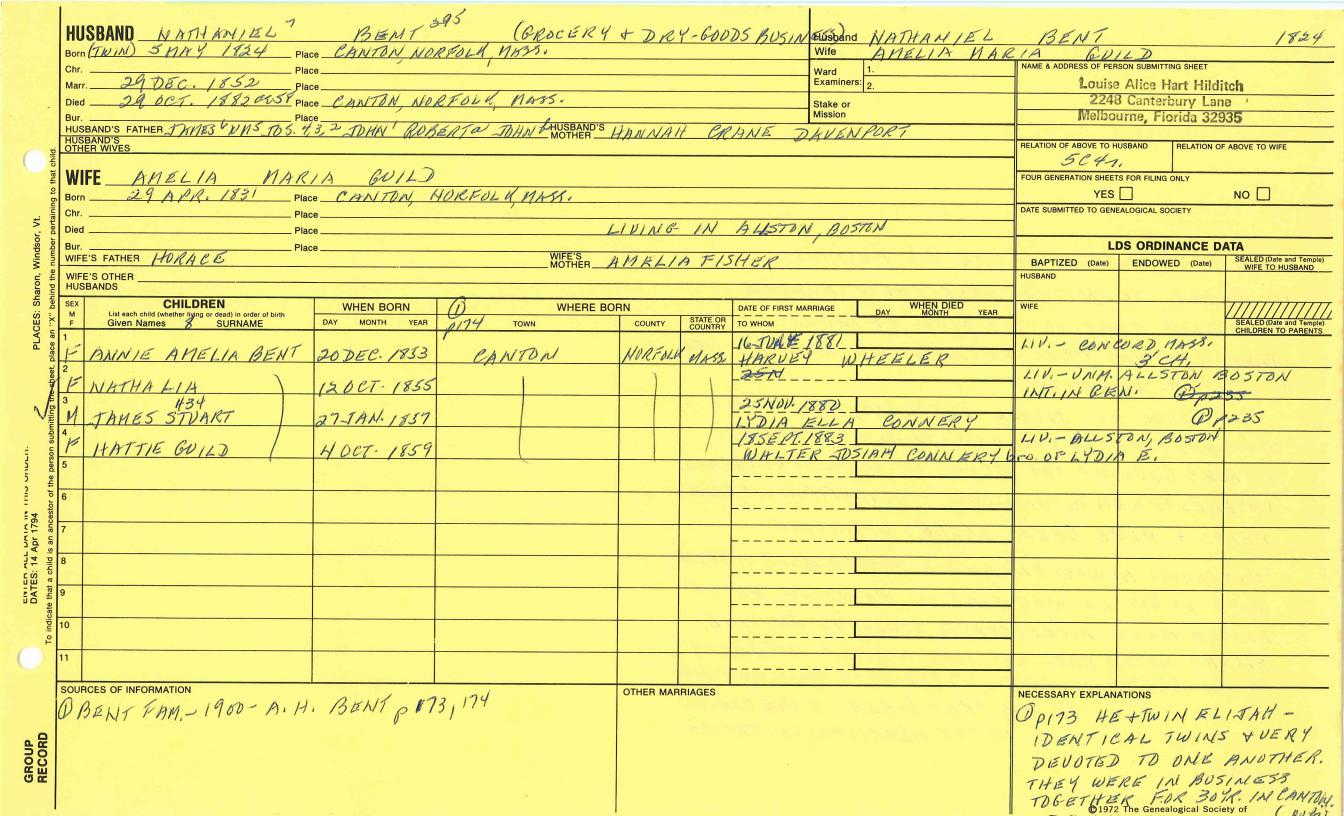 HUSBAND NATHANIEL 7 BENT 395 (GROCERY & DRY-GOODS BUSINESS)
Born (TWIN) 5 MAY 1824 Place CANTON, NORFOLK, MASS.
Chr. Place
Marr. 29 DEC. 1852 Place
Died 29 OCT. 1882 Place CANTON, NORFOLK, MASS.
Bur. Place
HUSBAND'S FATHER JAMES 6 WMS JOS. 4,3,2 JOHN 1 ROBERT a JOHN b HUSBAND'S MOTHER HANNAH CRANE DAVENPORT
HUSBAND'S OTHER WIVES
Husband NATHANIEL BENT 1824
Wife AMELIA MARIA GUILD
Ward Examiners: 1. 2.
Stake or Mission
NAME & ADDRESS OF PERSON SUBMITTING SHEET
Louise Alice Hart Hilditch
2248 Canterbury Lane
Melbourne, Florida 32935
RELATION OF ABOVE TO HUSBAND RELATION OF ABOVE TO WIFE
5C4r.
FOUR GENERATION SHEETS FOR FILING ONLY
YES NO
DATE SUBMITTED TO GENEALOGICAL SOCIETY
WIFE AMELIA MARIA GUILD
Born 29 APR. 1831 Place CANTON, NORFOLK, MASS.
Chr. Place
Died Place LIVING IN ALLSTON, BOSTON
Bur. Place
WIFE'S FATHER HORACE WIFE'S MOTHER AMELIA FISHER
WIFE'S OTHER HUSBANDS
LDS ORDINANCE DATA
BAPTIZED (Date) ENDOWED (Date) SEALED (Date and Temple) WIFE TO HUSBAND
HUSBAND
WIFE
SEALED (Date and Temple) CHILDREN TO PARENTS
SEX M F
CHILDREN
List each child (whether living or dead) in order of birth
Given Names 8 SURNAME
WHEN BORN
DAY MONTH YEAR
① p174
WHERE BORN
TOWN COUNTY STATE OR COUNTRY
DATE OF FIRST MARRIAGE
TO WHOM
WHEN DIED
DAY MONTH YEAR
1 16 JUNE 1881 LIV. - CONCORD MASS.
F ANNIE AMELIA BENT 20 DEC. 1853 CANTON NORFOLK MASS HARVEY WHEELER 3 CH.
2 25N LIV. - UNM. ALLSTON BOSTON
F NATHALIA 12 OCT. 1855 INT. IN GEN. ① p235
3 #34 25 NOV. 1880
M JAMES STUART 27 JAN. 1857 LYDIA ELLA CONNERY ① p235
4 18 SEPT. 1883 LIV. - ALLSTON, BOSTON
F HATTIE GUILD 4 OCT. 1859 WALTER JOSIAH CONNERY bro OF LYDIA E.
5
6
7
8
9
10
11
SOURCES OF INFORMATION
① BENT FAM. - 1900 - A. H. BENT p 173, 174
OTHER MARRIAGES
NECESSARY EXPLANATIONS
① p173 HE + TWIN ELIJAH -
IDENTICAL TWINS & VERY
DEVOTED TO ONE ANOTHER.
THEY WERE IN BUSINESS
TOGETHER FOR 30 YR. IN CANTON.
©1972 The Genealogical Society of
PLACES: Sharon, Windsor, Vt.
To indicate that a child is an ancestor of the person submitting the sheet, place an "X" behind the number pertaining to that child.
ENTER ALL DATA IN THIS ORDER:
DATES: 14 Apr 1794
GROUP RECORD